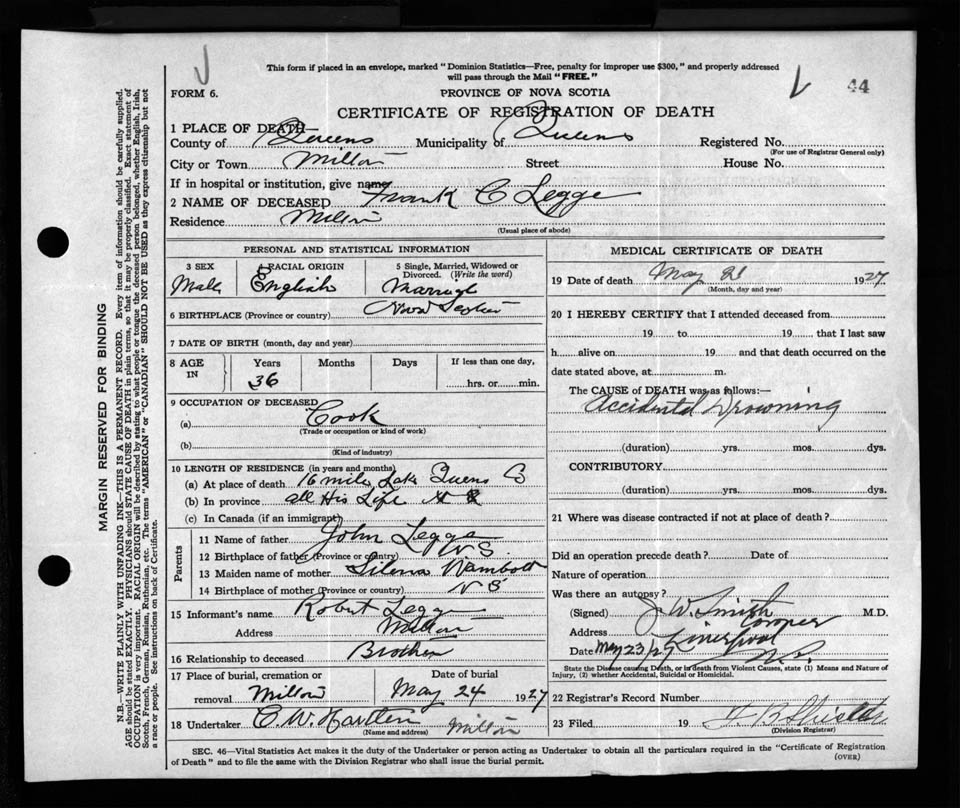 This form if placed in an envelope, marked "Dominion Statistics—Free, penalty for improper use $300," and properly addressed
will pass through the Mail "FREE."
44
FORM 6.
PROVINCE OF NOVA SCOTIA
CERTIFICATE OF REGISTRATION OF DEATH
1 PLACE OF DEATH—
County of Queens Municipality of Queens Registered No.
(For use of Registrar General only)
City or Town Milton Street House No.
If in hospital or institution, give name
2 NAME OF DECEASED Frank C Legge
Residence Milton
(Usual place of abode)
PERSONAL AND STATISTICAL INFORMATION
3 SEX
Male
RACIAL ORIGIN
English
5 Single, Married, Widowed or Divorced. (Write the word)
6 BIRTHPLACE (Province or country) Nova Scotia
7 DATE OF BIRTH (month, day and year)
8 AGE IN
Years Months Days If less than one day,
36 hrs. or min.
9 OCCUPATION OF DECEASED
(a) Cook
(Trade or occupation or kind of work)
(b)
(Kind of industry)
10 LENGTH OF RESIDENCE (in years and months)
(a) At place of death 16 mile Lake Queens Co
(b) In province all His Life N S
(c) In Canada (if an immigrant)
Parents
11 Name of father John Legge
12 Birthplace of father (Province or country) N S
13 Maiden name of mother Wambolt
14 Birthplace of mother (Province or country) N S
15 Informant's name Robert Legge
Address Milton
16 Relationship to deceased Brother
17 Place of burial, cremation or removal Milton
Date of burial
May 24 1927
18 Undertaker C. W. Milton
(Name and address)
MEDICAL CERTIFICATE OF DEATH
19 Date of death May 21 1927
(Month, day and year)
20 I HEREBY CERTIFY that I attended deceased from
19 to 19 that I last saw
h alive on 19 and that death occurred on the
date stated above, at m.
The CAUSE of DEATH was as follows:—
Accidental Drowning
(duration) yrs. mos. dys.
CONTRIBUTORY
(duration) yrs. mos. dys.
21 Where was disease contracted if not at place of death?
Did an operation precede death? Date of
Nature of operation
Was there an autopsy?
(Signed) J. W. Smith M.D.
Coroner
Address Liverpool
Date May 23/27 N.S.
State the Disease causing Death, or in death from Violent Causes, state (1) Means and Nature of
Injury, (2) whether Accidental, Suicidal or Homicidal.
22 Registrar's Record Number
23 Filed 19
(Division Registrar)
SEC. 46—Vital Statistics Act makes it the duty of the Undertaker or person acting as Undertaker to obtain all the particulars required in the "Certificate of Registration
of Death" and to file the same with the Division Registrar who shall issue the burial permit.
(OVER)
MARGIN RESERVED FOR BINDING
N.B.—WRITE PLAINLY WITH UNFADING INK—THIS IS A PERMANENT RECORD. Every item of information should be carefully supplied.
AGE should be stated EXACTLY. PHYSICIANS should STATE CAUSE OF DEATH in plain terms, so that it may be properly classified. Exact statement of
OCCUPATION is very important. RACIAL ORIGIN will be described by stating to what people or tongue the deceased person belonged, whether English, Irish,
Scotch, French, German, Russian, Ruthenian, etc. The terms "AMERICAN" or "CANADIAN" SHOULD NOT BE USED as they express citizenship but not
a race or people. See instructions on back of Certificate.